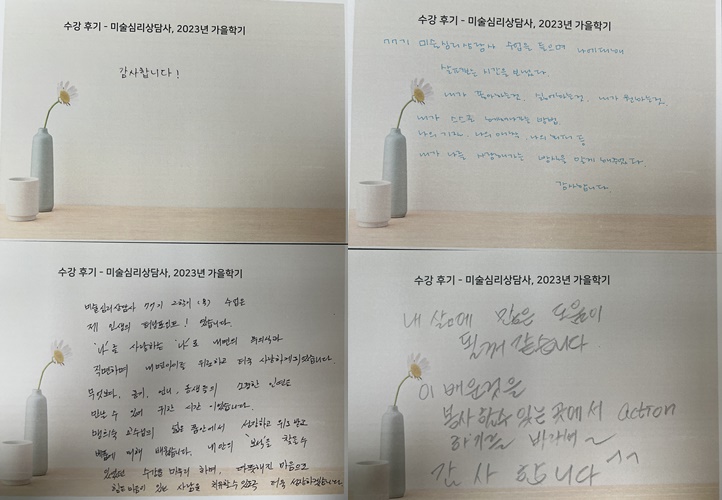 수강 후기 - 미술심리상담사, 2023년 가을학기
감사합니다!
수강 후기 - 미술심리상담사, 2023년 가을학기
77기 미술심리상담사 수업을 들으며 나에 대해
살펴보는 시간을 보냈다.
내가 좋아하는것, 싫어하는것, 내가 원하는것,
내가 스스로 방법,
나의 기질, 나의 나의 등
내가 나를 방법을 알게 되었다.
감사합니다.
수강 후기 - 미술심리상담사, 2023년 가을학기
미술심리상담사 77기 2학기 (목) 수업은
제 인생의 터닝포인트! 였습니다.
'나'를 사랑하는 '나'로 내면의
직면하며 내면아이를 위로하고 더욱 사랑하게 되었습니다.
무엇보다, 언니, 동생들의 소중한 인연도
만날 수 있어 귀한 시간 이었습니다.
교수님의 넓은 품안에서 성장하고 위로 받고
배움에 대해 배웠습니다. 내 안의 '보석'을 찾을 수
있었던 수강을 마무리 하며, 따뜻해진 마음으로
힘든 마음이 있는 사람을 치유할 수 있도록 더욱 성장하겠습니다.
수강 후기 - 미술심리상담사, 2023년 가을학기
내 삶에 많은 도움이
될꺼 같습니다.
이 배운것을
봉사 할수 있는 곳에서 action
하기를 바라며~
감사 합니다 ^^